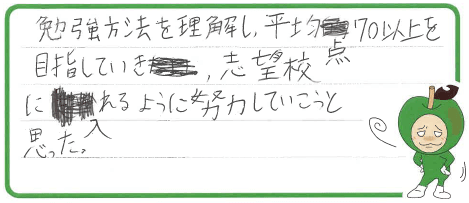 勉強方法を理解し、平均点70以上を
目指していき、志望校
に入れるように努力していこうと
思った。